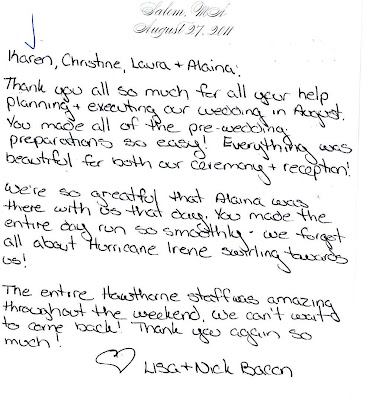 Salem, MA
August 27, 2011
Karen, Christine, Laura + Alaina:
Thank you all so much for all your help
planning + executing our wedding in August.
You made all of the pre-wedding
preparations so easy! Everything was
beautiful for both our ceremony + reception!
We're so greatful that Alaina was
there with us that day. You made the
entire day run so smoothly - we forget
all about Hurricane Irene swirling towards
us!
The entire Hawthorne staff was amazing
throughout the weekend. We can't wait
to come back! Thank you again so
much!
Lisa + Nick Bacon